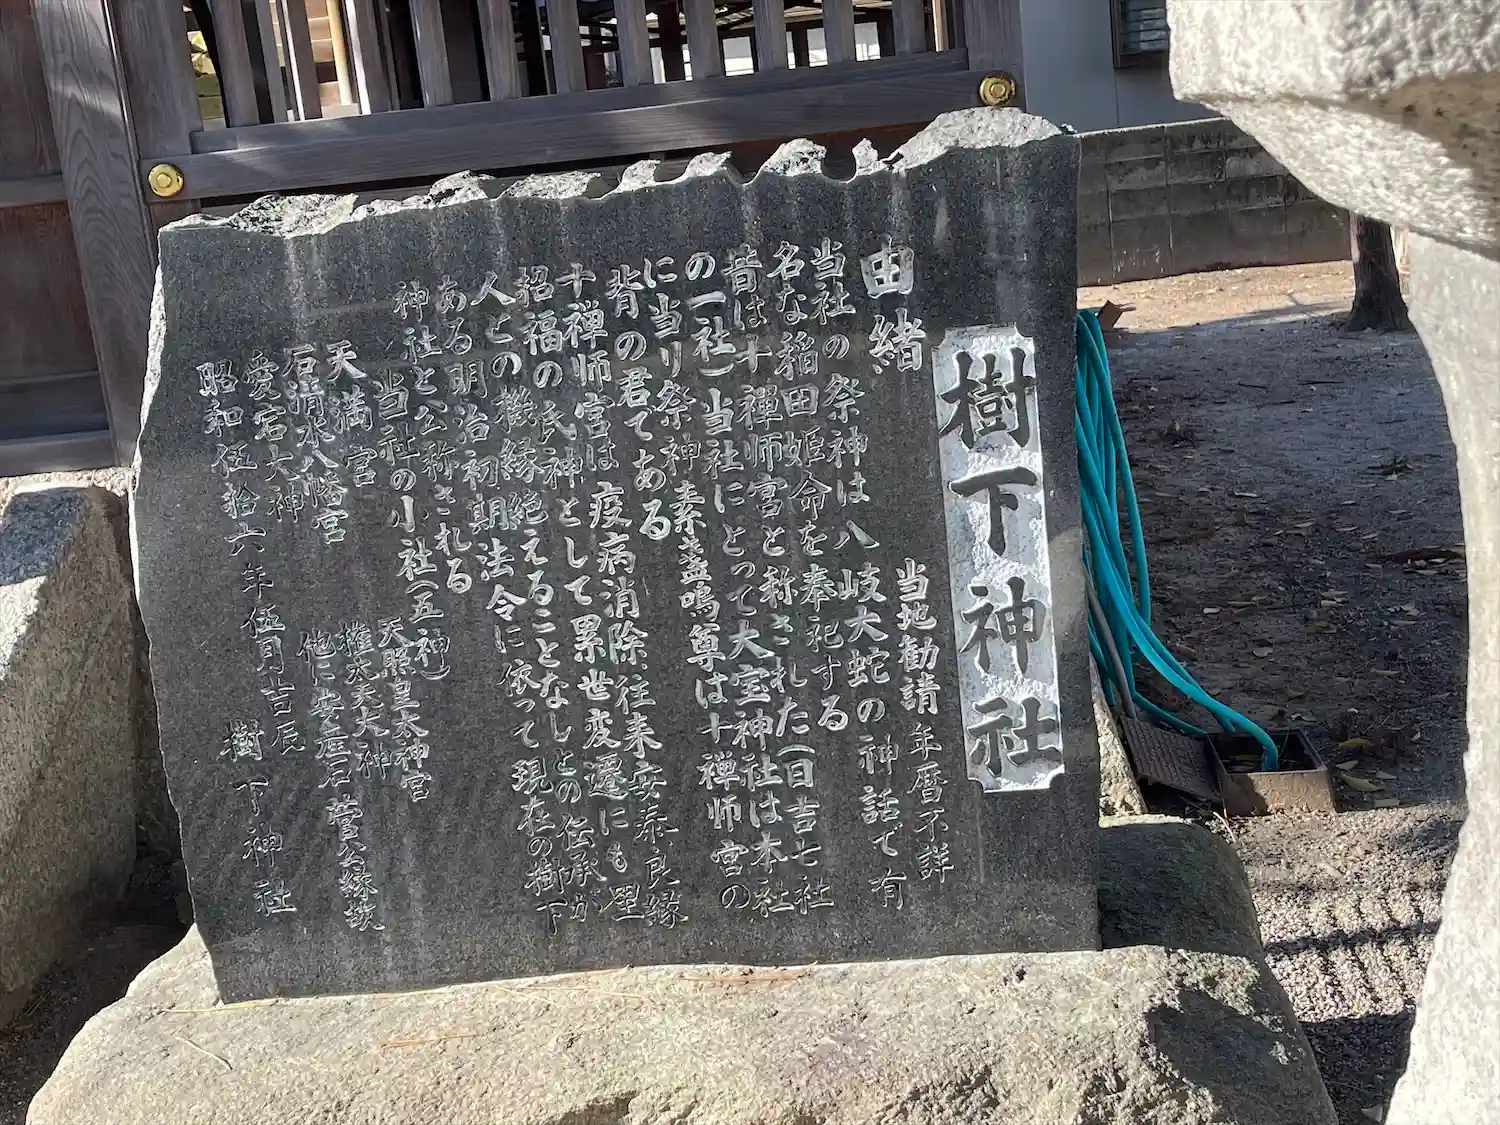 樹下神社
由緒 当地勧請年暦不詳
当社の祭神は八岐大蛇の神話で有
名な稲田姫命を奉祀する
昔は十禅师宮と称された(日吉七社
の一社)当社にとって大宝神社は本社
に当り祭神素盞鳴尊は十禅师宮の
背の君てある
十禅师宮は疫病消除、往来安泰、良縁
招福の氏神として累世変遷にも里
人との機縁絶えることなしとの伝承が
ある明治初期法令に依って現在の樹下
神社と公称される
当社の小社(五神)
天満宮 天照皇太神宮
石清水八幡宮 権太夫大神
愛宕大神 他に安産石 菅公縁故
昭和伍拾六年伍月吉辰 樹下神社